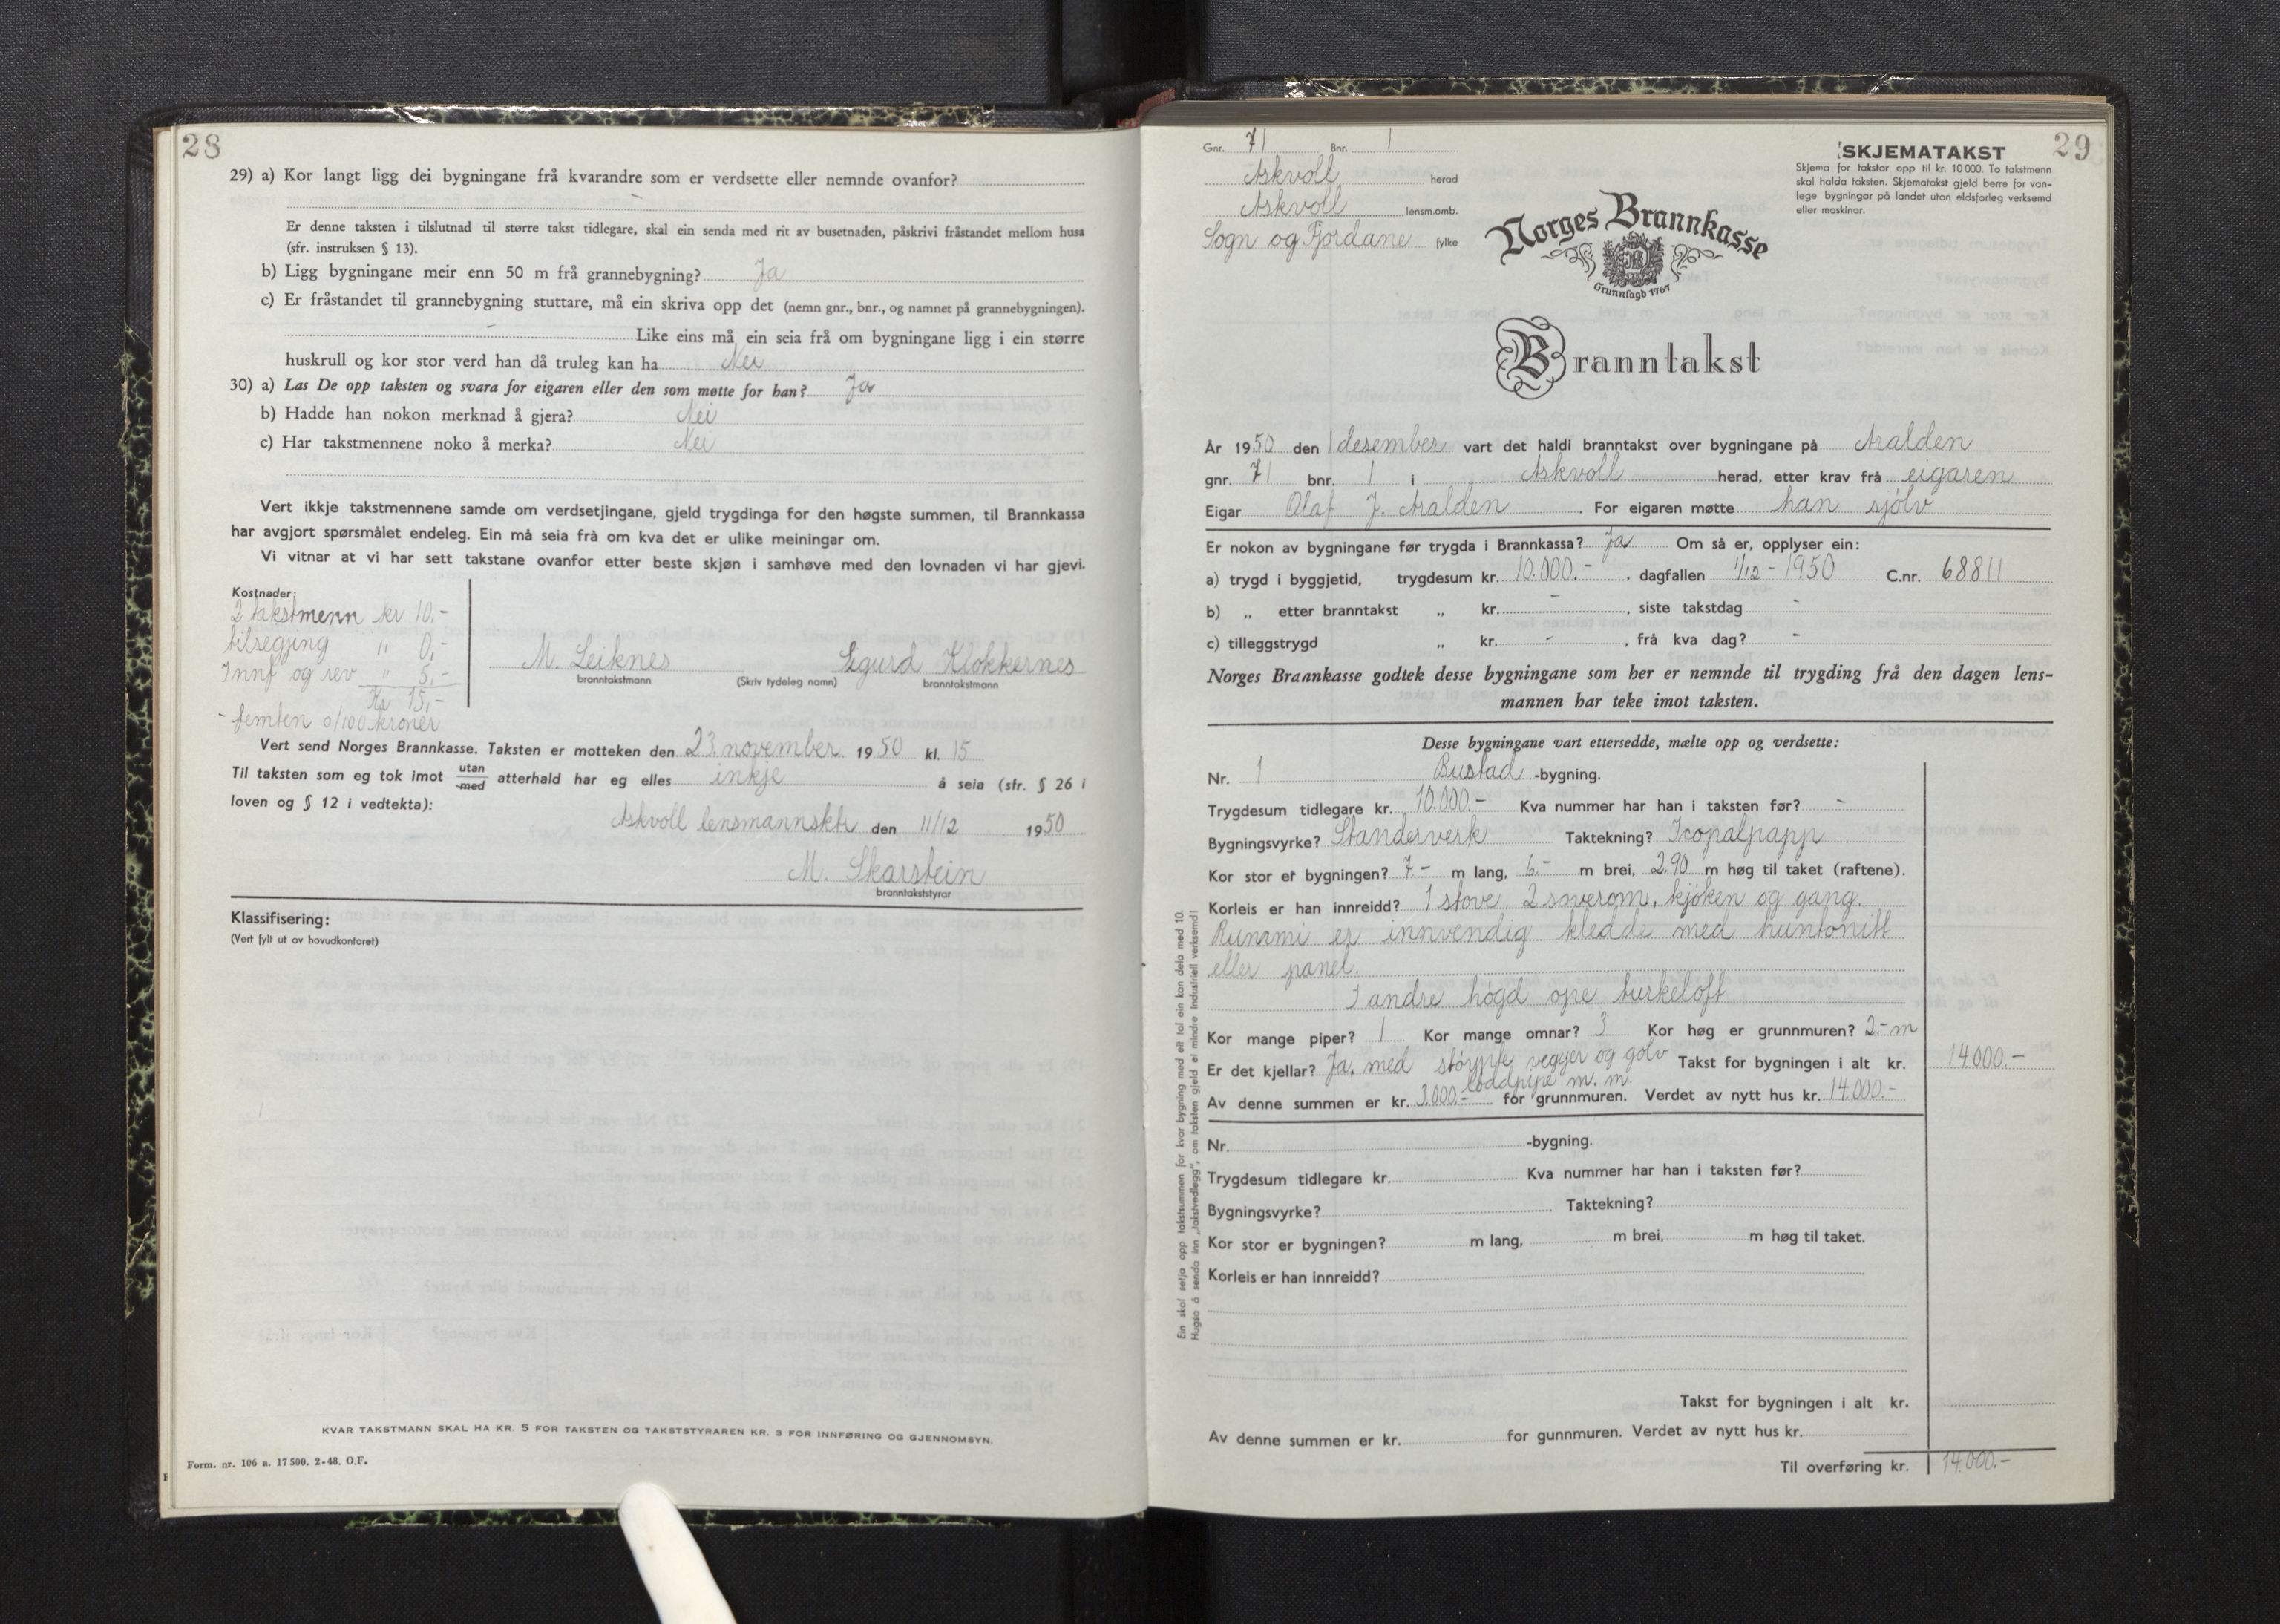 28
29) a) Kor langt ligg dei bygningane frå kvarandre som er verdsette eller nemnde ovanfor?
-
Er denne taksten i tilslutnad til større takst tidlegare, skal ein senda med rit av busetnaden, påskrivi fråstandet mellom husa
(sfr. instruksen § 13).
b) Ligg bygningane meir enn 50 m frå grannebygning? Ja
c) Er fråstandet til grannebygning stuttare, må ein skriva opp det (nemn gnr., bnr., og namnet på grannebygningen).
- Like eins må ein seia frå om bygningane ligg i ein større
huskrull og kor stor verd han då truleg kan ha Nei
30) a) Las De opp taksten og svara for eigaren eller den som møtte for han? Ja
b) Hadde han nokon merknad å gjera? Nei
c) Har takstmennene noko å merka? Nei
Vert ikkje takstmennene samde om verdsetjingane, gjeld trygdinga for den høgste summen, til Brannkassa
har avgjort spørsmålet endeleg. Ein må seia frå om kva det er ulike meiningar om.
Vi vitnar at vi har sett takstane ovanfor etter beste skjøn i samhøve med den lovnaden vi har gjevi.
Kostnader:
2 takstmenn kr 10,-
tilsegjing " 0,-
Innf og rev " 5,-
Kr 15,-
- femten 0/100 kroner
M. Leiknes Sigurd Klokkernes
branntakstmann (Skriv tydeleg namn) branntakstmann
Vert send Norges Brannkasse. Taksten er motteken den 23. november 1950 kl. 15
Til taksten som eg tok imot utan/med atterhald har eg elles inkje å seia (sfr. § 26 i
loven og § 12 i vedtekta):
Askvoll lensmannsktr den 11/12 1950
M. Skarstein
branntakststyrar
Klassifisering:
(Vert fylt ut av hovudkontoret)
KVAR TAKSTMANN SKAL HA KR. 5 FOR TAKSTEN OG TAKSTSTYRAREN KR. 3 FOR INNFØRING OG GJENNOMSYN.
Form. nr. 106 a. 17 500. 2-48. O.F.
Gnr. 71 Bnr. 1
Askvoll herad
Askvoll lensm.omb.
Sogn og Fjordane fylke
SKJEMATAKST
29
Skjema for takstar opp til kr. 10 000. To takstmenn
skal halda taksten. Skjematakst gjeld berre for van-
lege bygningar på landet utan eldsfarleg verksemd
eller maskinar.
Norges Brannkasse
Grunnlagd 1767
Branntakst
År 1950 den 1 desember vart det haldi branntakst over bygningane på Aralden
gnr. 71 bnr. 1 i Askvoll herad, etter krav frå eigaren
Eigar Olaf J. Aralden . For eigaren møtte han sjølv
Er nokon av bygningane før trygda i Brannkassa? Ja Om så er, opplyser ein:
a) trygd i byggjetid, trygdesum kr. 10.000.- , dagfallen 1/12 - 1950 C.nr. 68811
b) „ etter branntakst „ kr. - , siste takstdag -
c) tilleggstrygd „ kr. - , frå kva dag? -
Norges Braankasse godtek desse bygningane som her er nemnde til trygding frå den dagen lens-
mannen har teke imot taksten.
Desse bygningane vart ettersedde, mælte opp og verdsette:
Nr. 1 Bustad -bygning.
Trygdesum tidlegare kr. 10.000.- Kva nummer har han i taksten før? -
Bygningsvyrke? Standerverk Taktekning? Icopalpapp
Kor stor er bygningen? 7.- m lang, 6.- m brei, 2.90 m høg til taket (raftene).
Korleis er han innreidd? 1 stove, 2 soverom, kjøken og gang.
Runami er innvendig kledde med huntonitt
eller panel.
I andre høgd ope turkeloft
Kor mange piper? 1 Kor mange omnar? 3 Kor høg er grunnmuren? 2.- m
Er det kjellar? Ja, med støypte vegger og golv Takst for bygningen i alt kr. 14.000.-
Av denne summen er kr. 3.000.- for grunnmuren. loddpipe m. m. Verdet av nytt hus kr. 14.000.-
Nr. -bygning.
Trygdesum tidlegare kr. Kva nummer har han i taksten før?
Bygningsvyrke? Taktekning?
Kor stor er bygningen? m lang, m brei, m høg til taket.
Korleis er han innreidd?
Takst for bygningen i alt kr.
Av denne summen er kr. for gunnmuren. Verdet av nytt hus kr.
Til overføring kr. 14.000.-
Ein skal setja opp takstsummen for kvar bygning med eit tal ein kan dela med 10.
Hugso å senda inn „takstvedlegg", om taksten gjeld ei mindre industriell verksemd!